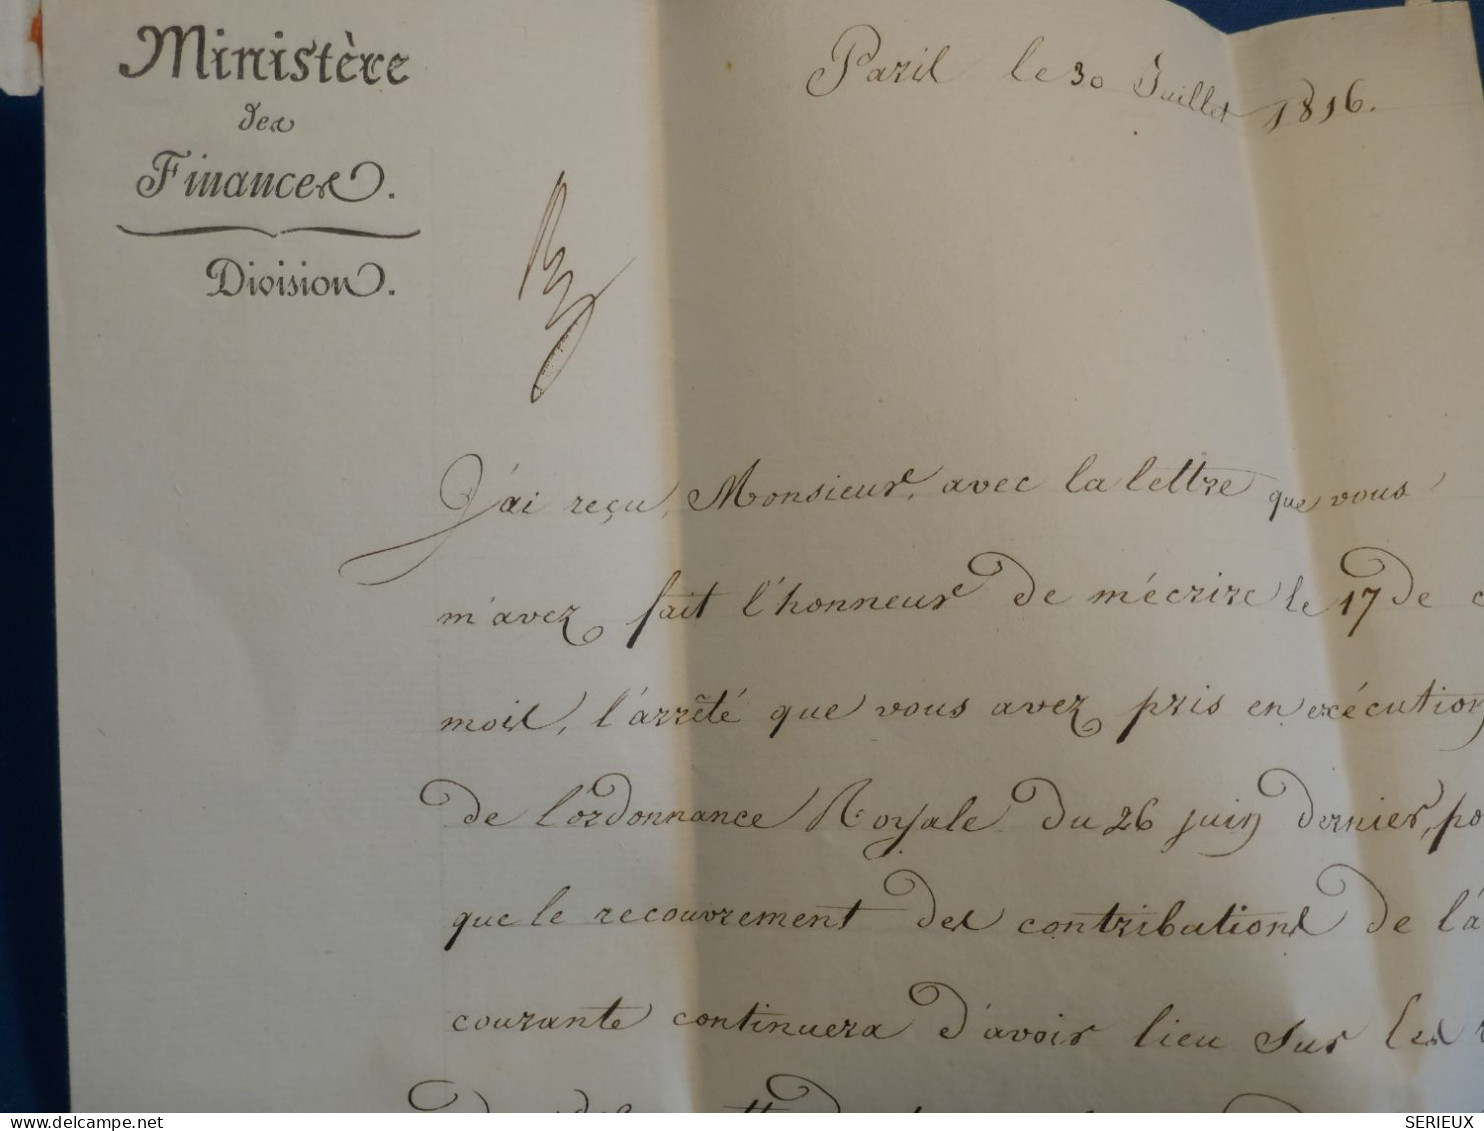 Ministère
des
Finances.
Division.
Paris le 30 Juillet 1816.
J'ai reçu, Monsieur, avec la lettre que vous
m'avez fait l'honneur de m'écrire le 17 de c
mois, l'arrêté que vous avez pris en exécution
de l'ordonnance Royale du 26 juin dernier, po
que le recouvrement des contributions de l'a
courante continuera d'avoir lieu sur les r
delcampe.net
SERIEUX